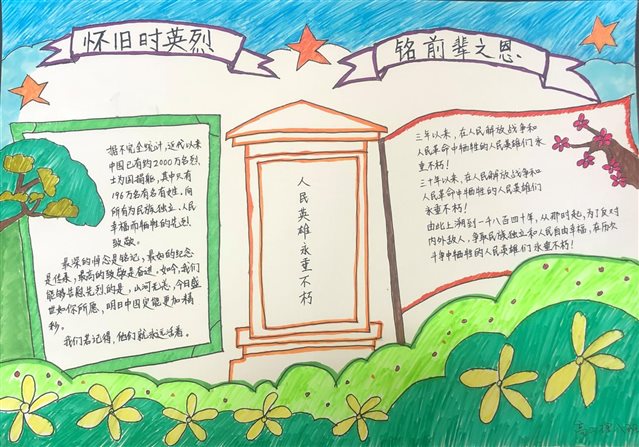 怀旧时英烈
铭前辈之恩
据不完全统计，近代以来
中国已有约2000万名烈
士为国捐躯，其中只有
196万名有名有姓，向
所有为民族独立、人民
幸福而牺牲的先烈
致敬。
最深的悼念是铭记，最好的纪念
是传承，最高的致敬是奋进。如今，我们
能够告慰先烈的是，山河无恙，今日盛
世如你所愿，明日中国定能更加精
彩。
我们若记得，他们就永远活着。
人民英雄永垂不朽
三年以来，在人民解放战争和
人民革命中牺牲的人民英雄们永
垂不朽！
三十年以来，在人民解放战争和
人民革命中牺牲的人民英雄们
永垂不朽！
由此上溯到一千八百四十年，从那时起，为了反对
内外敌人，争取民族独立和人民自由幸福，在历次
斗争中牺牲的人民英雄们永垂不朽！